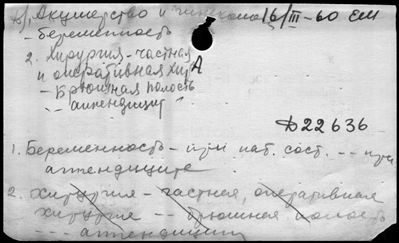 Акушерство и гинеколог 16/III-60 ЕМ
- беременность
2. Хирургия - частная
и оперативная хир
А
- Брюшная полость
" аппендицит
Д22636
1. Беременность - при пат. сост. -- при
аппендиците
2. хирургия - частная, оперативная
хирургия -- брюшная полость
-- аппендицит